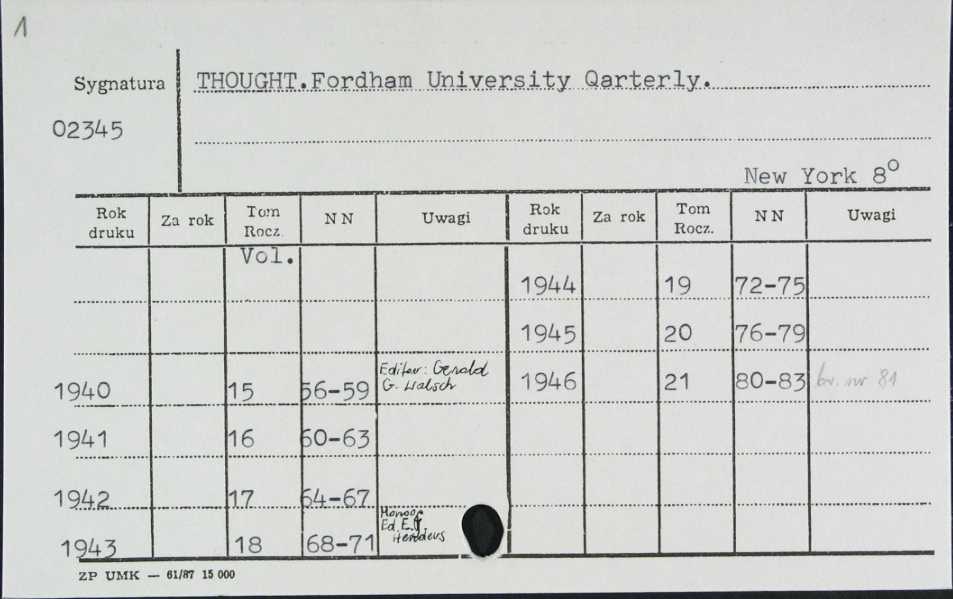 1
Sygnatura
THOUGHT.Fordham University Qarterly.
02345
New York 8°
Rok druku Za rok Tom Rocz. NN Uwagi Rok druku Za rok Tom Rocz. NN Uwagi
Vol.
1944 19 72-75
1945 20 76-79
1940 15 56-59 Editor: Gerald
G. Walsch
1946 21 80-83 br. nr 81
1941 16 60-63
1942 17 64-67
Ed. E.
1943 18 68-71
ZP UMK — 61/87 15 000